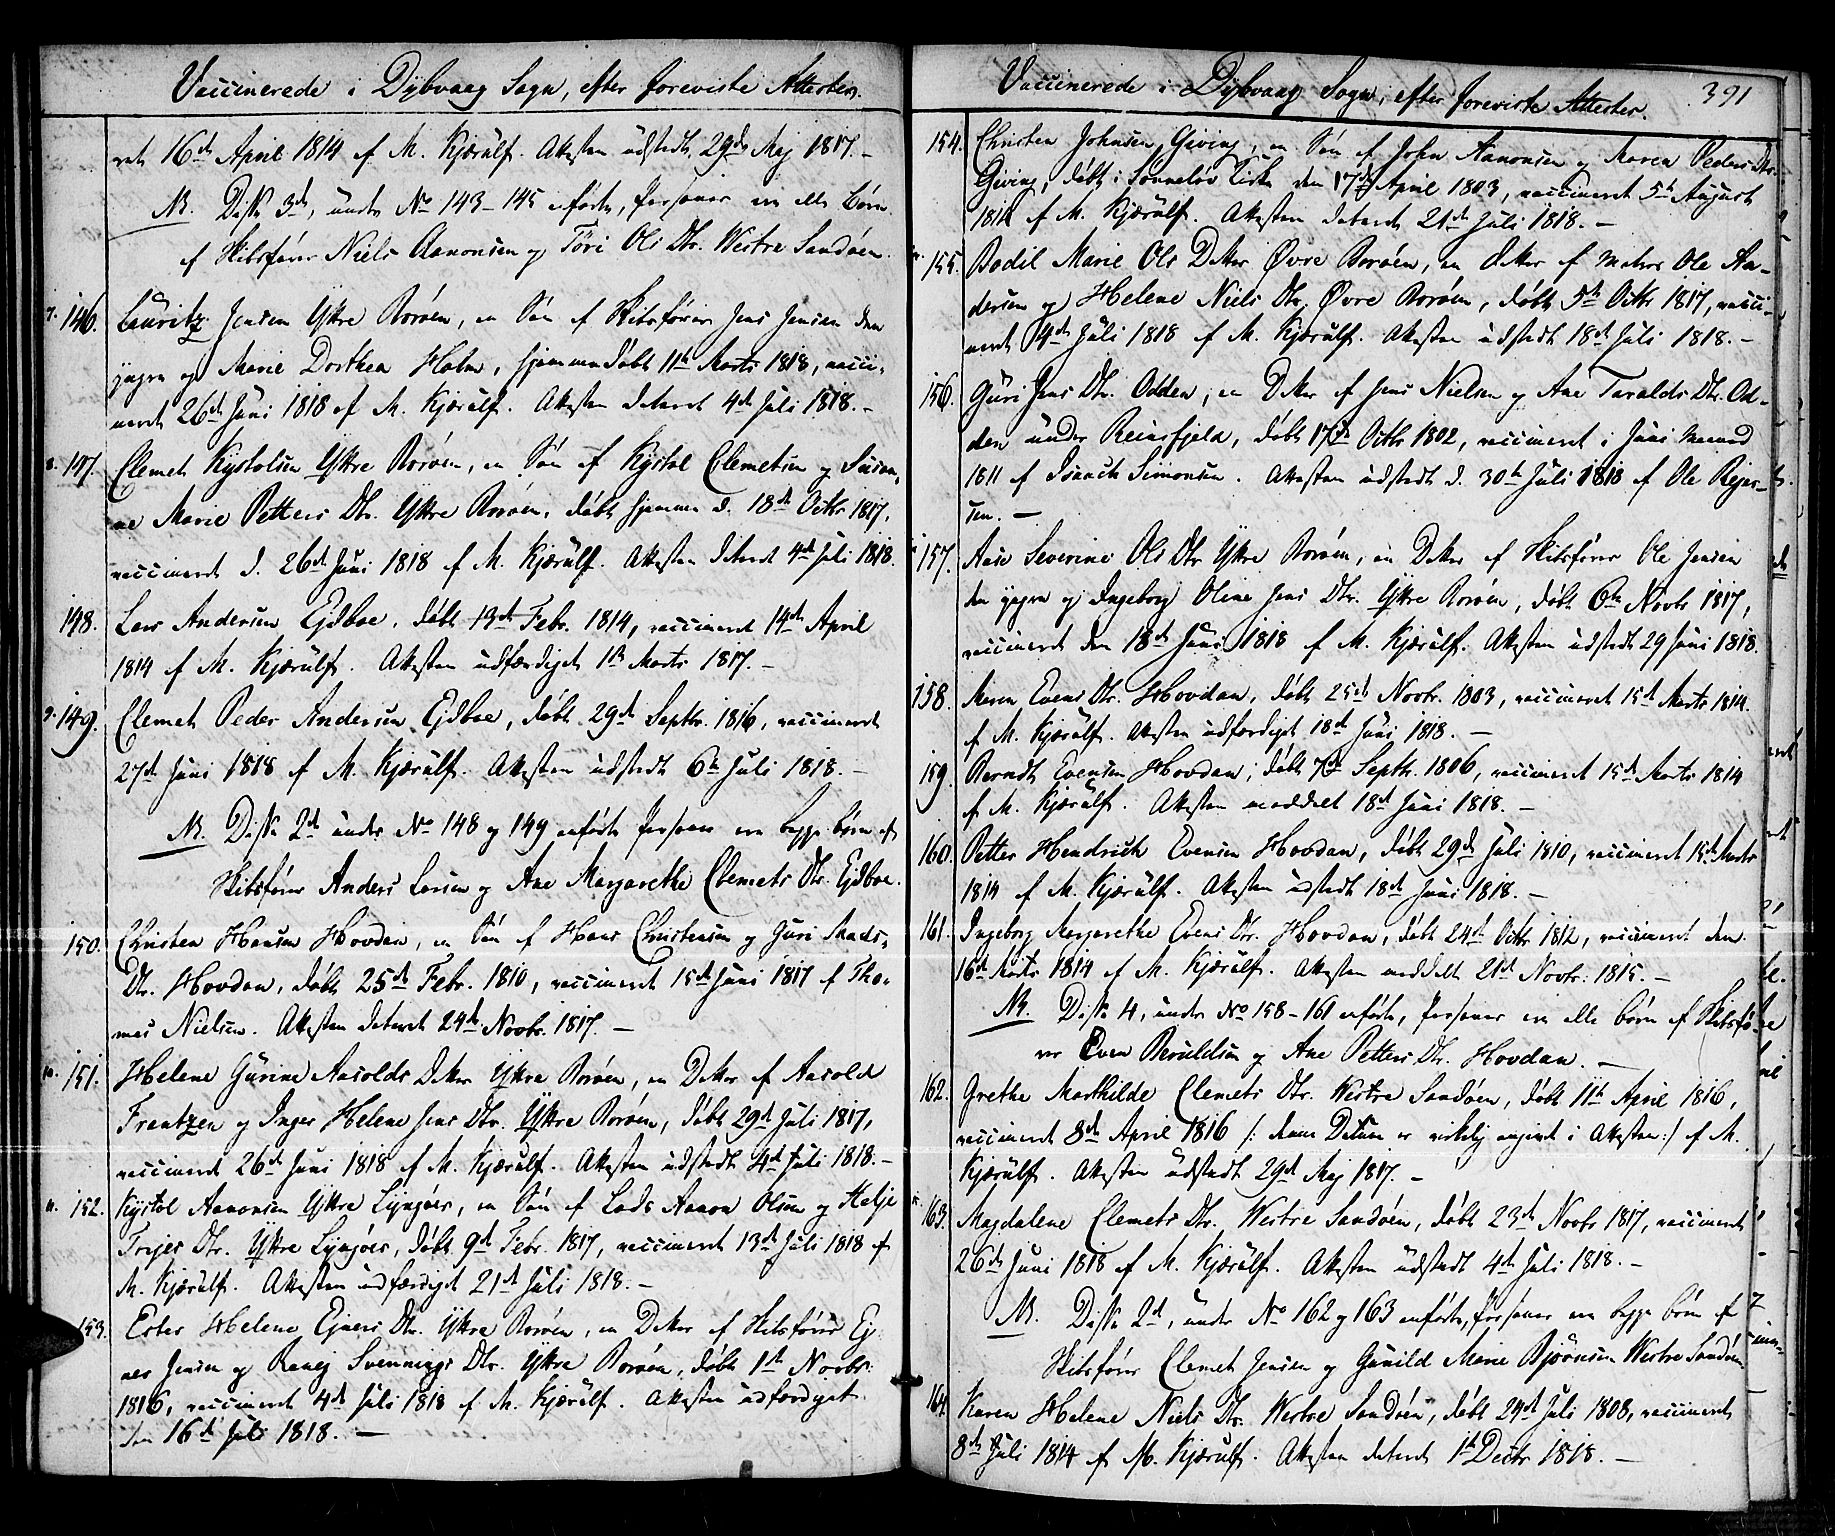 Vaccinerede i Dybvaag Sogn, efter foreviste Attester.
net 16de April 1814 af M. Kjærülf. Attesten üdstedt 29de Maj 1817.-
NB. Disse 3de, ünder No 143-145 anførte, Personer ere alle Børn
af Skibsfører Niels Aanonsen og Töri Ols Dtr. Westre Sandøen.
7. 146. Lauritz Jensen Ÿttre Borøen, en Søn af Skibsfører Jens Jensen den
yngre og Marie Dorthea Holm, hjemmedøbt 11te Marts 1818, vacci-
neret 26de Juni 1818 af M. Kjærülf. Attesten dateret 4de Juli 1818.-
8. 147. Clemet Kystolsen Ÿttre Borøen, en Søn af Kystol Clemetsen og Susan-
ne Marie Petters Dtr. Ÿttre Borøen, døbt hjemme d. 18de Octbr 1817,
vaccineret d. 26de Juni 1818 af M. Kjærülf. Attesten dateret 4de Juli 1818.
148. Lars Andersen Ejdboe, døbt 13de Febr. 1814, vaccineret 14de April
1814 af M. Kjærülf. Attesten udfærdiget 1ste Marts 1817.-
9. 149. Clemet Peder Andersen Ejdboe, døbt 29de Septbr. 1816, vaccineret
27de Juni 1818 af M. Kjærülf. Attesten üdstedt 6te Juli 1818.-
NB. Disse 2de ünder No 148 og 149 anførte Personer ere begge børn af
Skibsfører Anders Larsen og Ane Margarethe Clemets Dtr. Ejdboe.
150. Christen Hansen Hovdan, en Søn af Hans Christensen og Guri Mads-
Dtr. Hovdan, døbt 25de Febr. 1810, vaccineret 15de Juni 1817 af Tho-
mas Nielsen. Attesten dateret 24de Novbr. 1817.-
10. 151. Helene Gürine Aasolds Datter Ÿttre Borøen, en Datter af Aasold
Frantzen og Inger Helene Jens Dtr. Ÿttre Borøen, døbt 29de Juli 1817,
vaccineret 26de Juni 1818 af M. Kjærülf. Attesten üdstedt 4de Juli 1818.-
11. 152. Kystol Aanonsen Ÿttre Lyngøer, en Søn af Lods Aanon Olsen og Helje
Terjes Dtr. Ÿttre Lyngøer, døbt 9de Febr. 1817, vaccineret 13de Juli 1818 af
M. Kjærülf. Attesten udfærdiget 21de Juli 1818.-
153. Ester Helene Ejners Dtr. Ÿttre Borøen, en Datter af Skibsfører Ej-
ner Jensen og Ranej Svennings Dtr. Ÿttre Borøen, døbt 1ste Novbr.
1816, vaccineret 4de Juli 1818 af M. Kjærülf. Attesten udfærdiget
den 16de Juli 1818.-
Vaccinerede i Dybvaag Sogn, efter foreviste Attester. 391
154. Christen Johnsen Giving, en Søn af John Aanonsen og Maren Peders Dtr.
Giving, døbt i Sønneløv Kirke den 17de April 1803, vaccineret 5te August
1812 af M. Kjærülf. Attesten dateret 21de Juli 1818.-
155. Bodil Marie Ols Datter Øvre Borøen, en Datter af Matros Ole An-
dersen og Helene Niels Dtr. Øvre Borøen, døbt 5te Octbr 1817, vacci-
neret 4de Juli 1818 af M. Kjærülf. Attesten üdstedt 18de Juli 1818.-
156. Guri Jens Dtr. Odden, en Datter af Jens Nielsen og Ane Taralds Dtr. Od-
den ünder Reinsfjeld, døbt 17de Octbr 1802, vaccineret i Juni Maaned
1811 af Isanck Simonsen. Attesten üdstedt d. 30te Juli 1818 af Ole Rejer-
sen.-
157. Aase Severine Ols Dtr. Ÿttre Borøen, en Datter af Skibsfører Ole Jensen
den yngre og Ingeborg Oline Jens Dtr. Ÿttre Borøen, døbt 6te Novbr 1817,
vaccineret den 18de Juni 1818 af M. Kjærülf. Attesten üdstedt 29 Juni 1818.
158. Maren Evens Dtr. Hovdan, døbt 25de Novbr. 1803, vaccineret 15de Marts 1814
af M. Kjærülf. Attesten udfærdiget 18de Juni 1818.-
159. Berndt Evensen Hovdan, døbt 7de Septbr. 1806, vaccineret 15de Marts 1814
af M. Kjærülf. Attesten meddelt 18de Juni 1818.-
160. Petter Hendrich Evensen Hovdan, døbt 29de Juli 1810, vaccineret 15de Marts
1814 af M. Kjærülf. Attesten üdstedt 18de Juni 1818.-
161. Ingeborg Margarethe Evens Dtr. Hovdan, døbt 24de Octbr 1812, vaccineret den
16de Marts 1814 af M. Kjærülf. Attesten meddelt 21de Novbr. 1815.-
NB. Disse 4, ünder No 158-161 anførte, Personer ere alle børn af Skibsfø-
rer Even Beruldsen og Ane Petters Dtr. Hovdan.-
162. Grethe Mathilde Clemets Dtr. Westre Sandøen, døbt 11te April 1816,
vaccineret 8de April 1816 /: denne Datum er virkelig angivet i Attesten:/ af M.
Kjærülf. Attesten üdstedt 29de Maj 1817.-
163. Magdalene Clemets Dtr. Westre Sandøen, døbt 23de Novbr 1817, vaccineret
26de Juni 1818 af M. Kjærülf. Attesten üdstedt 4de Juli 1818.-
NB. Disse 2de, ünder No 162 og 163 anførte, Personer ere begge børn af
Skibsfører Clemet Jensen og Gunild Marie Bjørnsen Westre Sandøen
164. Karen Helene Niels Dtr. Westre Sandøen, døbt 24de Juli 1808, vaccineret
8de Juli 1814 af M. Kjærülf. Attesten dateret 1ste Decbr 1818.-